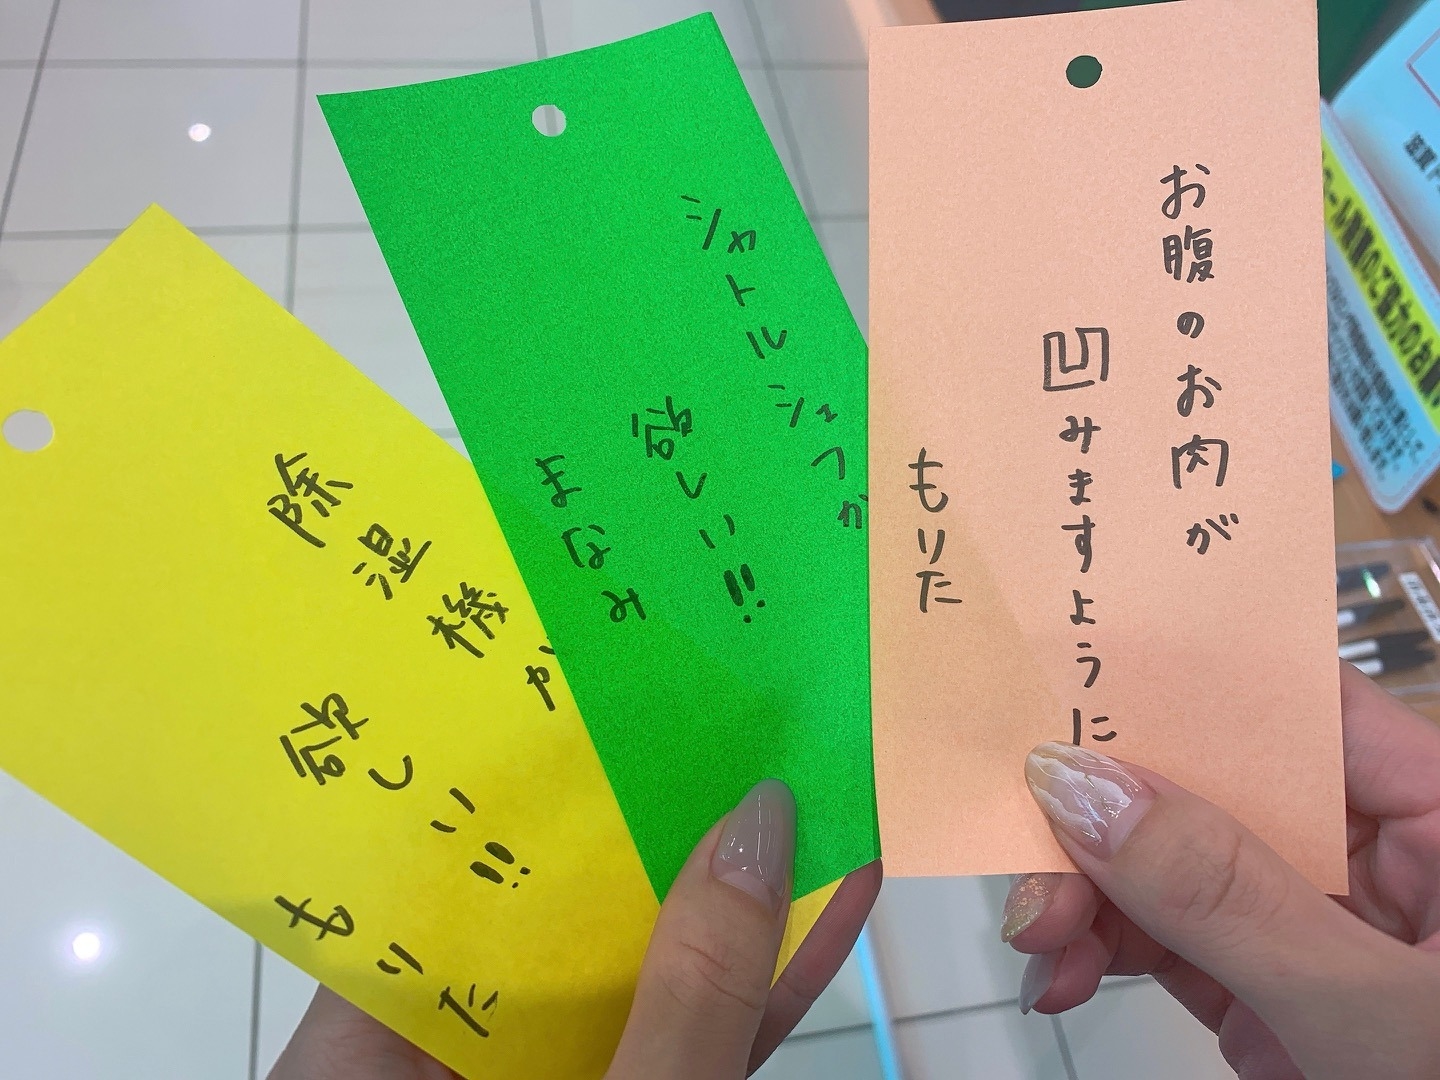 お腹のお肉が
凹みますように
もりた
シャトルシェフが
欲しい!!
まなみ
除湿機が
欲しい!!
もりた